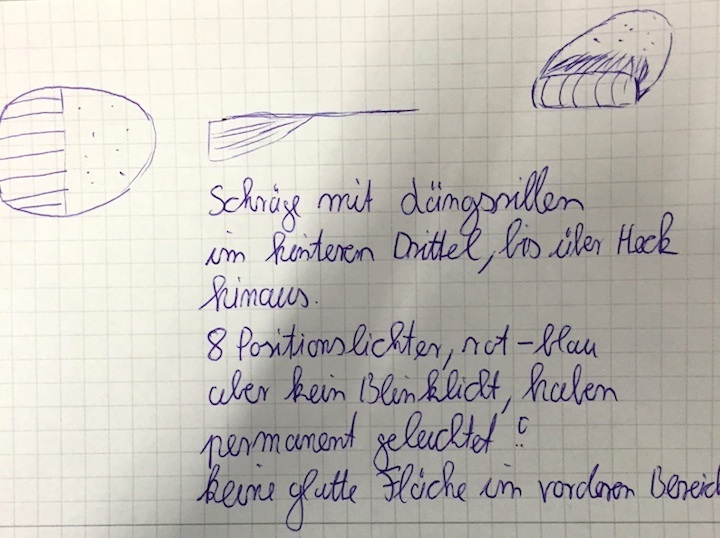 Schräge mit Längsrillen
im hinteren Drittel, bis über Heck
hinaus.
8 Positionslichter, rot-blau
aber kein Blinklicht, haben
permanent geleuchtet!
keine glatte Fläche im vorderen Bereich